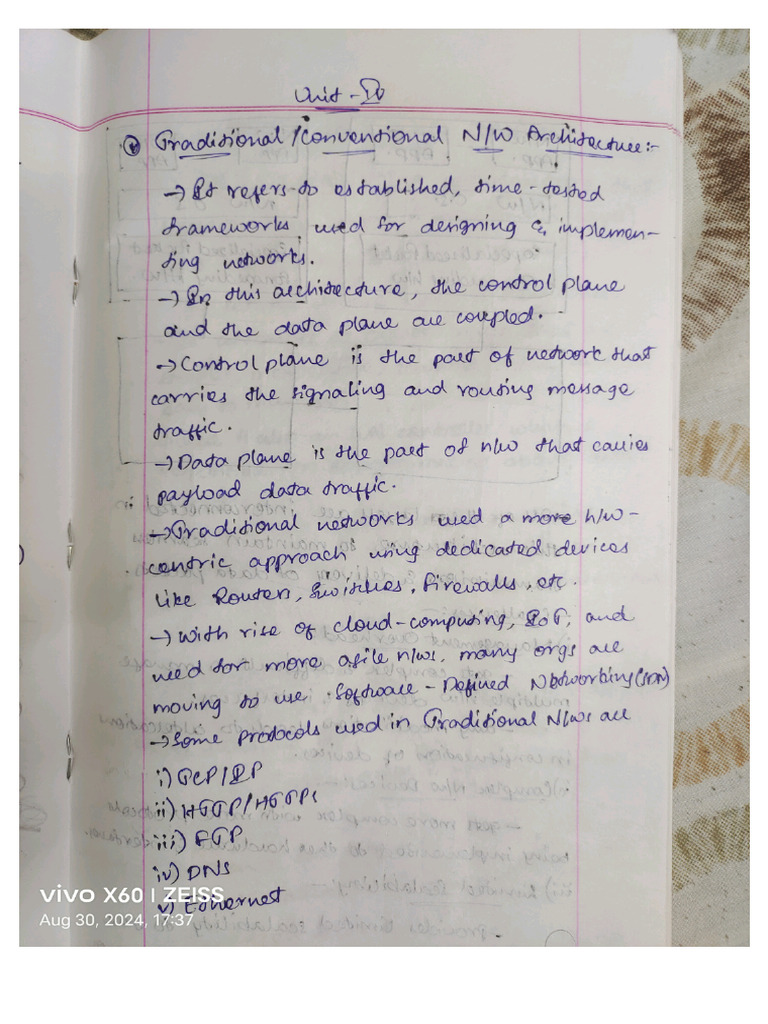 Unit - IV
Traditional / Conventional N/W Architecture:-
→ It refers to established, time-tested
frameworks used for designing & implemen-
ting networks.
→ In this architecture, the control plane
and the data plane are coupled.
→ Control plane is the part of network that
carries the signaling and routing message
traffic.
→ Data plane is the part of n/w that carries
payload data traffic.
→ Traditional networks used a more h/w-
centric approach using dedicated devices
like Routers, Switches, Firewalls, etc.
→ With rise of cloud-computing, IoT, and
need for more agile n/ws, many orgs are
moving to use Software-Defined Networking (SDN)
→ Some protocols used in Traditional N/Ws are
i) TCP/IP
ii) HTTP/HTTPs
iii) FTP
iv) DNS
v) Ethernet
vivo X60 | ZEISS
Aug 30, 2024, 17:37